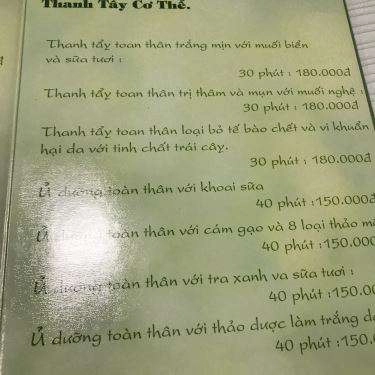 Thanh Tẩy Cơ Thể.
Thanh tẩy toan thân trắng mịn với muối biển
và sữa tươi :
30 phút : 180.000đ
Thanh tẩy toan thân trị thâm và mụn với muối nghệ :
30 phút : 180.000đ
Thanh tẩy toan thân loại bỏ tế bào chết và vi khuẩn
hại da với tinh chất trái cây.
30 phút : 180.000đ
Ủ dưỡng toàn thân với khoai sữa
40 phút :150.000
Ủ dưỡng toàn thân với cám gạo và 8 loại thảo
40 phút :150.000
Ủ dưỡng toàn thân với tra xanh va sữa tươi :
40 phút :150.00
Ủ dưỡng toàn thân với thảo dược làm trắng
40 phút :150.00